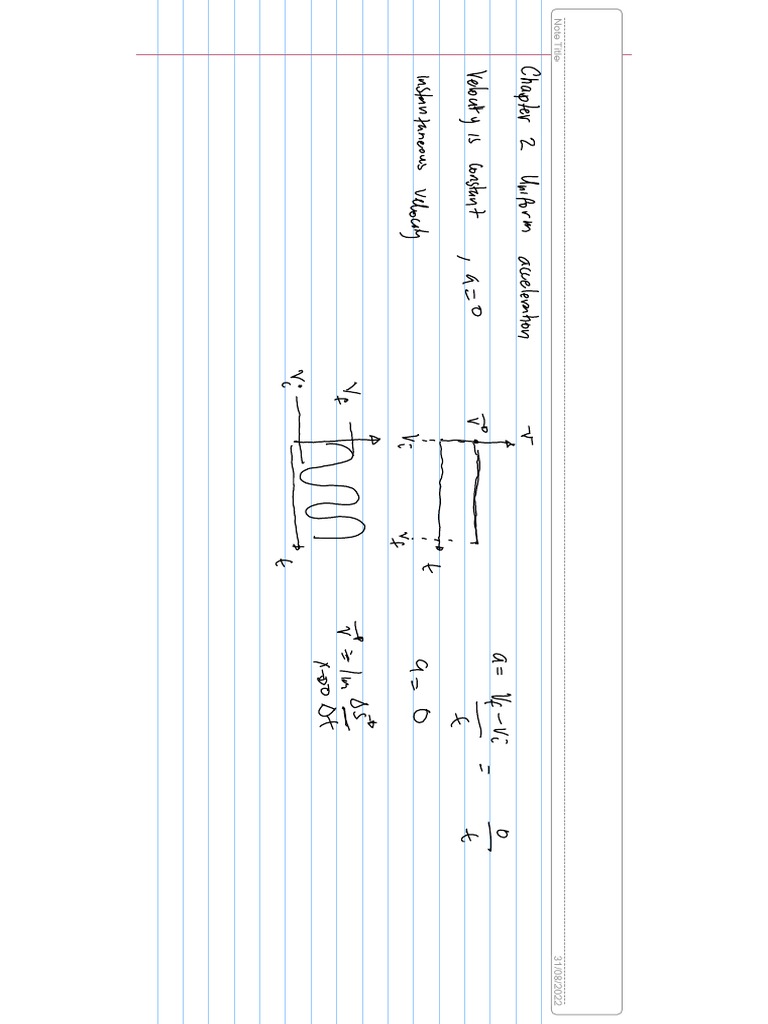 Note Title
31/08/2022
Chapter 2 Uniform acceleration
Velocity is constant, a=0
v
v⃗
t
vi
vf
a = vf - vi / t = 0 / t
instantaneous velocity
a = 0
vf
vi
t
v⃗ = lim Δs⃗ / Δt
x→∞